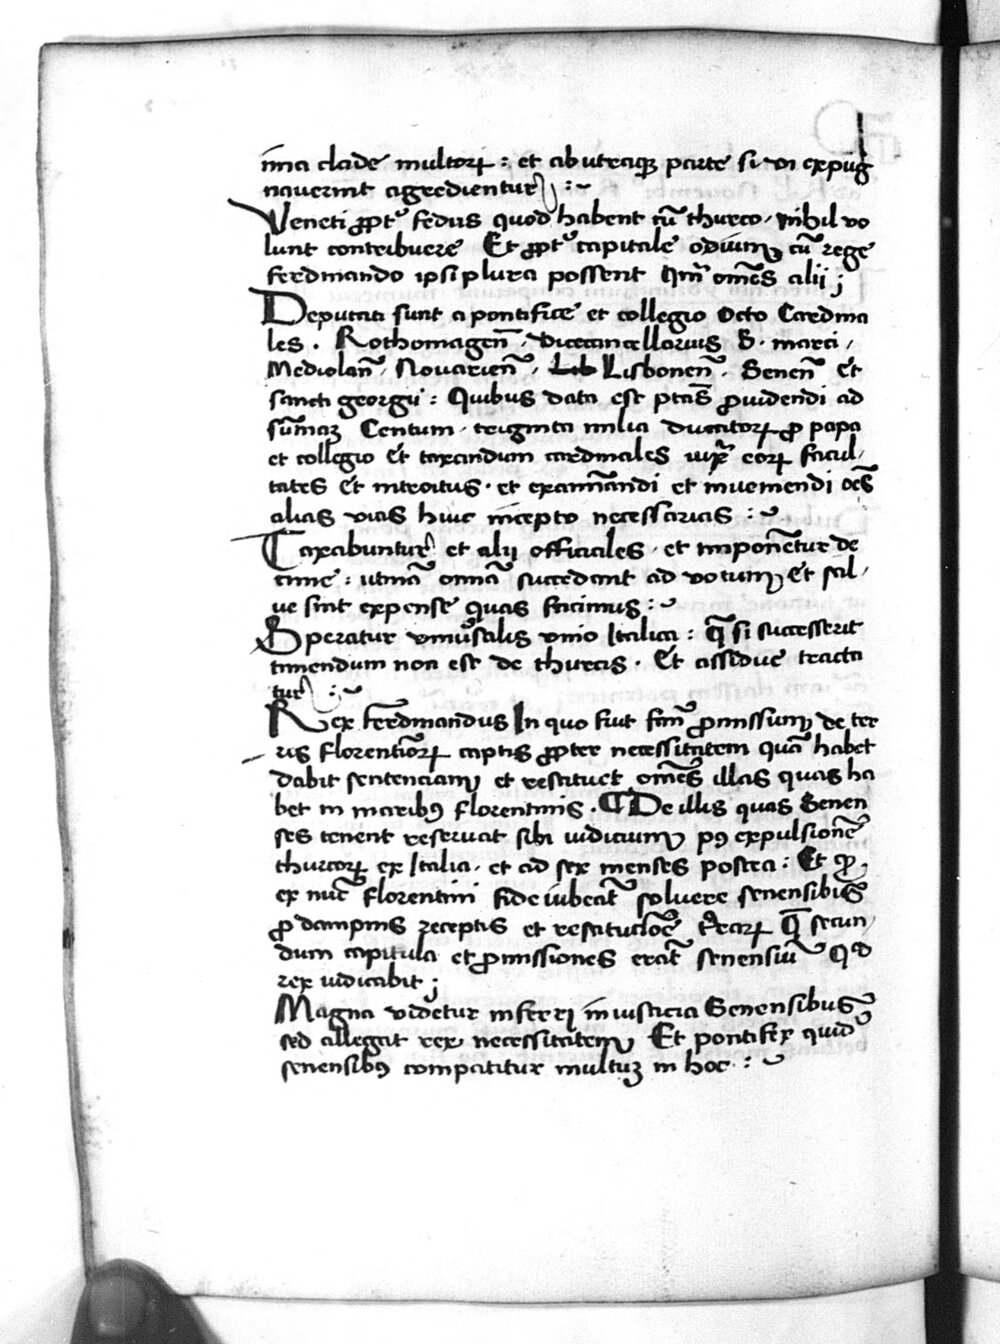 ima clade multorꝝ : et ab utraqꝫ parte si vi expug
nauerint agredientur :~
Veneti ꝓpt̉ fedus quod habent cũ thurco / nihil vo
lunt contribuere Et ꝓpt̉ capitale odium cũ rege
ferdinando ipsi plura possent q̃ omẽs alij ;
Deputati sunt a pontifice et collegio Octo Cardina
les . Rothomageñ / vicecancellarius S . marci /
Mediolañ / Nouarieñ / Lisboneñ / Seneñ Et
sancti georgij : Quibus data est ptas̃ ꝓuidendi ad
sũmaꝫ Centum / triginta milia ducatorꝝ ꝓ papa
et collegio Et taxandum cardinales iux̃ eorꝝ facul /
tates Et introitus . et examinãndi et inueniendi oẽs
alias vias huic incepto necessarias :~
Taxabuntur et alij officiales / et imponẽtur de
cime : utinã om̃ia succedant ad votum Et sal /
ue sint expense quas facimus :~
Speratur vniũsalis vnio Italica : q̃ si successerit
timendum non est de thurcis . Et assidue tracta
tur :~
Rex ferdinandus In quo fuit fc̃m ꝓmissum de ter
ris florentiñorꝝ captis ꝓpter necessitatem quã habet
dabit sentenciam et restituet omẽs illas quas ha
bet in manibꝰ florentinis . ¶ De illis quas Senen
ses tenent reseruat sibi iudicium pꝰ expulsionẽ
thurcorꝝ ex Italia / et ad sex menses postea : Et ꝙ /
ex nũc florentini fide iubeãt soluere senensibus
ꝓ dampnis receptis et restitucioẽ terrarꝝ q̃ secun /
dum capitula et ꝓmissiones erãt senensiũ Qd
rex iudicabit ;
Magna videtur inferri iniusticia Senensibus
sed allegat rex necessitatem Et pontifex quidẽ
senensibꝰ compatitur multuꝫ in hoc :~